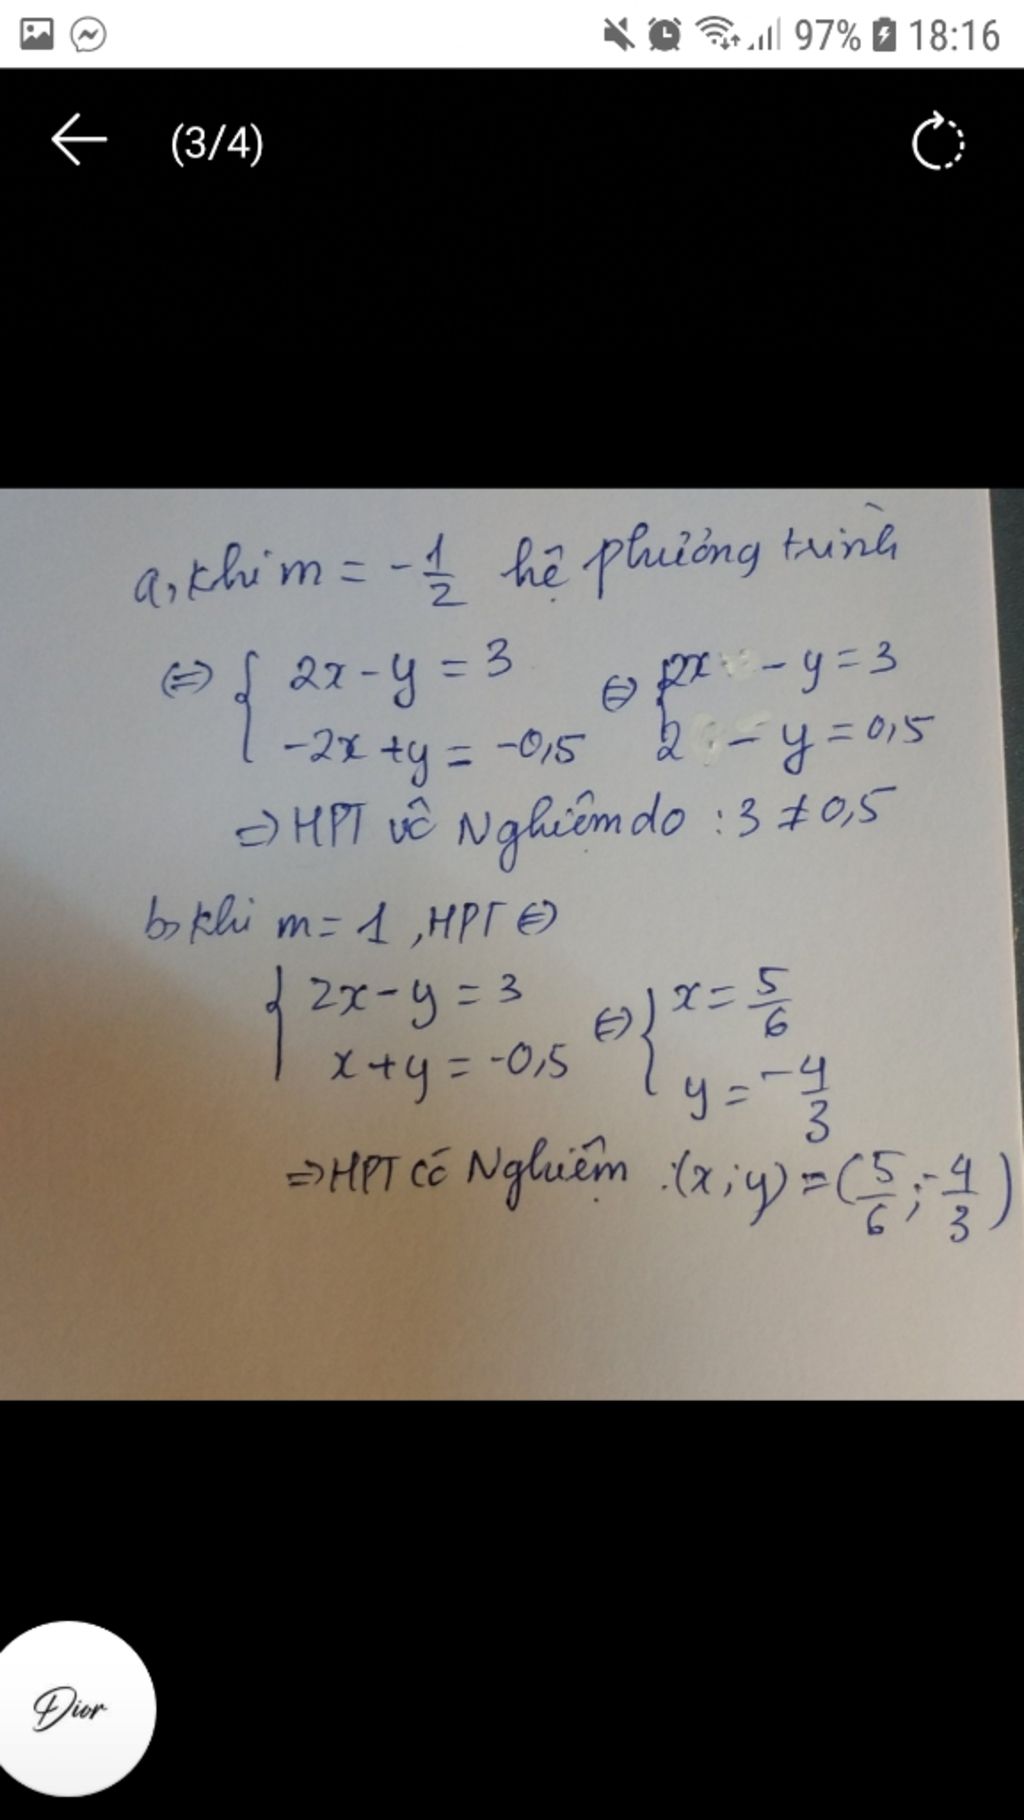 97% 18:16
(3/4)
a, khi m = -1/2 hệ phương trình
⇔ { 2x - y = 3 ⇔ { 2x - y = 3
-2x + y = -0,5 2 - y = 0,5
⇒ HPT vô Nghiệm do : 3 ≠ 0,5
b, khi m = 1 , HPT ⇔
{ 2x - y = 3 ⇔ { x = 5/6
x + y = -0,5 y = -4/3
⇒ HPT có Nghiệm : (x; y) = (5/6; -4/3)
Dior